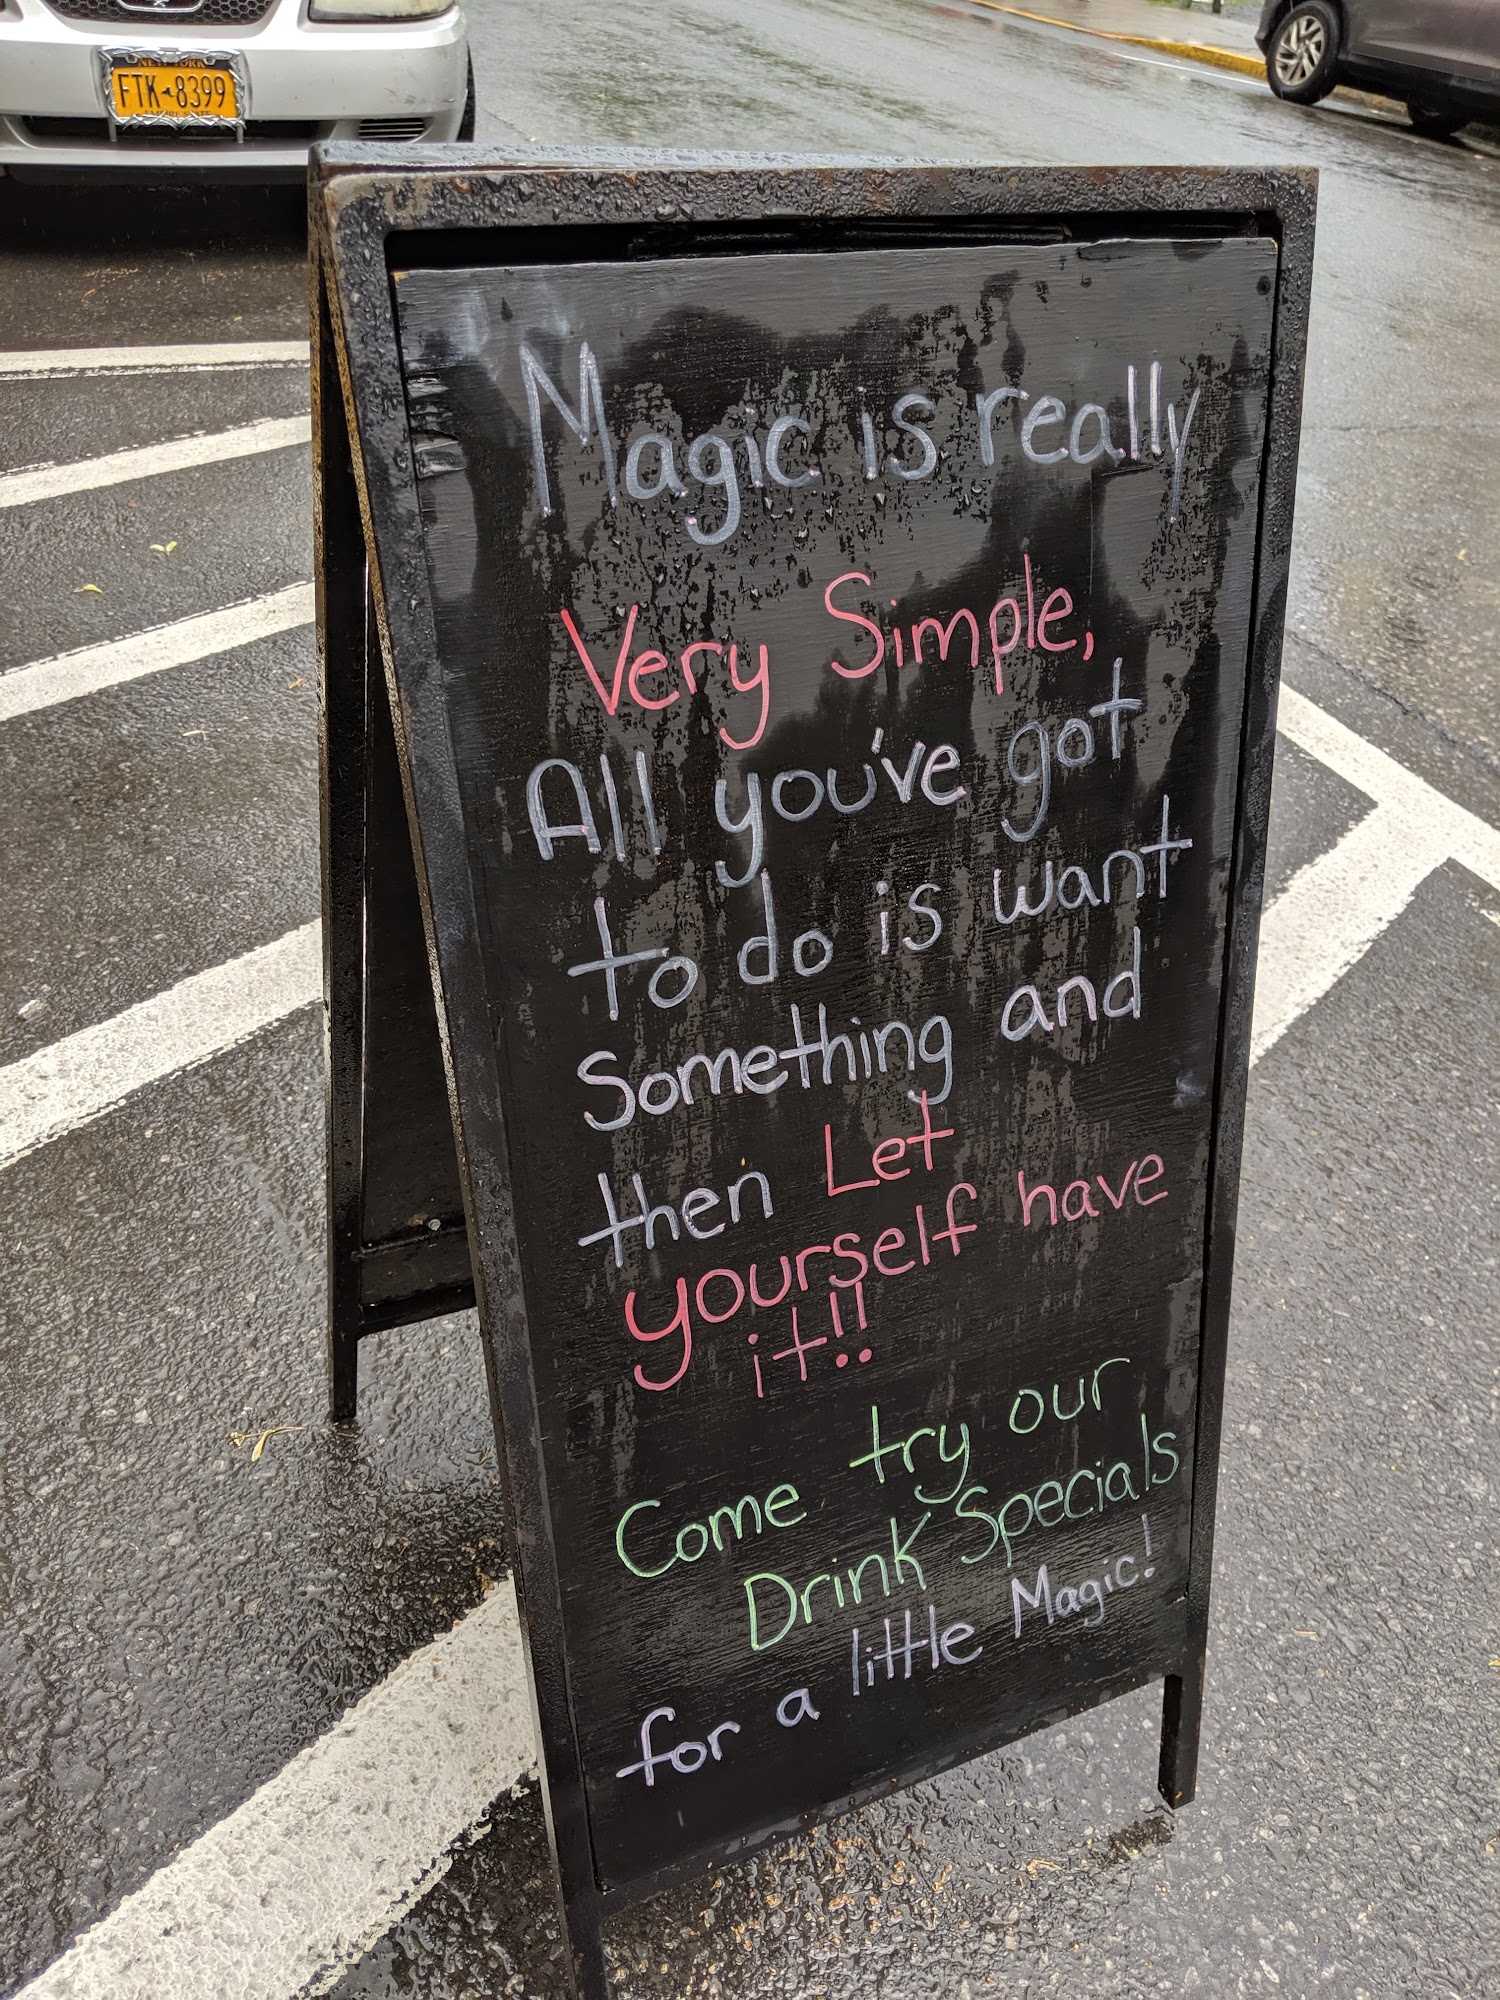 NEW YORK
FTK-8399
EMPIRE STATE
Magic is really
Very Simple,
All you've got
to do is want
Something and
then Let
yourself have
it!!
Come try our
Drink Specials
for a little Magic!